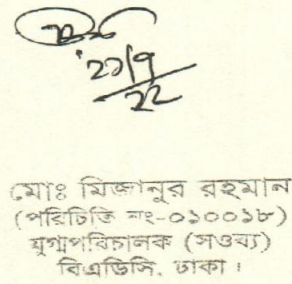 ২১/৭
২২
মোঃ মিজানুর রহমান
(পরিচিতি নং-০১০০১৮)
যুগ্মপরিচালক (সওব্য)
বিএডিসি, ঢাকা।